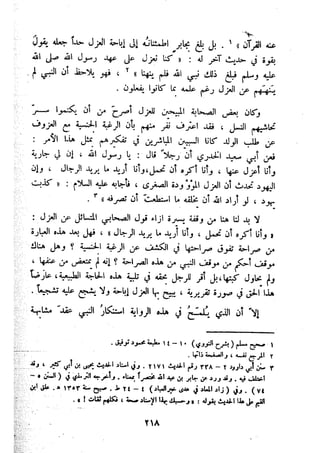 عنه القرآن » ١ . بل بلغ بجابر اطمئنانه إلى إباحة العزل حداً جعله يقول
بقوة في حديث آخر له : « كنا نعزل على عهد رسول الله صلى الله
عليه وسلم فبلغ ذلك نبي الله فلم ينهنا » ٢ ، فهو يلاحظ أن النبي لم
ينههم عن العزل رغم علمه بما كانوا يفعلون .
وكان بعض الصحابة المبيحين للعزل أصرح من أن يكتموا سر
تحاشيهم النسل ، فقد اعترف نفر منهم بأن الرغبة الجنسية مع العزوف
عن طلب الولد كانا السببين المباشرين في تفكيرهم بمثل هذا الأمر :
فعن أبي سعيد الخدري أن رجلاً قال : يا رسول الله ، إن لي جارية
وأنا أعزل عنها ، وأنا أكره أن تحمل، وأنا أريد ما يريد الرجال ، وإن
اليهود تحدث أن العزل الموؤدة الصغرى ، فأجابه عليه السلام : « كذبت
يهود ، لو أراد الله أن يخلقه ما استطعت أن تصرفه » ٣ .
لا بد لنا هنا من وقفة يسيرة ازاء قول الصحابي المتسائل عن العزل :
« وأنا أكره أن تحمل ، وأنا أريد ما يريد الرجال » ، فهل بعد هذه العبارة
من صراحة تفوق صراحتها في الكشف عن الرغبة الجنسية ؟ وهل هناك
موقف أحكم من موقف النبي من هذه الصراحة ؟ إنه لم يمتعض من عنفها ،
ولم يحاول كبتها، بل أقر للرجل بحقه في تلبية هذه الحاجة الطبيعية، عارضاً
هذا الحق في صورة تقريرية ، يبيح بها العزل إباحة ولا يشجع عليه تشجيعاً .
إلا أن الذي يلمح في هذه الرواية استنكار النبي عقد مشابهة
١ صحيح مسلم ( بشرح النووي ) ١٠ – ١٤ طبعة محمود توفيق .
٢ المرجع نفسه ، والصفحة ذاتها .
٣ سنن أبي داوود ٢ – ٣٣٨ رقم الحديث ٢١٧١ . وفي اسناد الحديث يحيى بن أبي كثير ، وقد
اختلف فيه . وقد ورد عن جابر بن عبد الله مختصراً بمعناه . وأخرجه الترمذي في ( السنن ٥ –
٧٤ ) . وفي ( زاد المعاد في هدى خير العباد ) ٤ – ٢٤ ط . صبيح سنة ١٣٥٣ ه . علق ابن
القيم على هذا الحديث بقوله : « وحسبك بهذا الإسناد صحة ، فكلهم ثقات » .
٢١٨